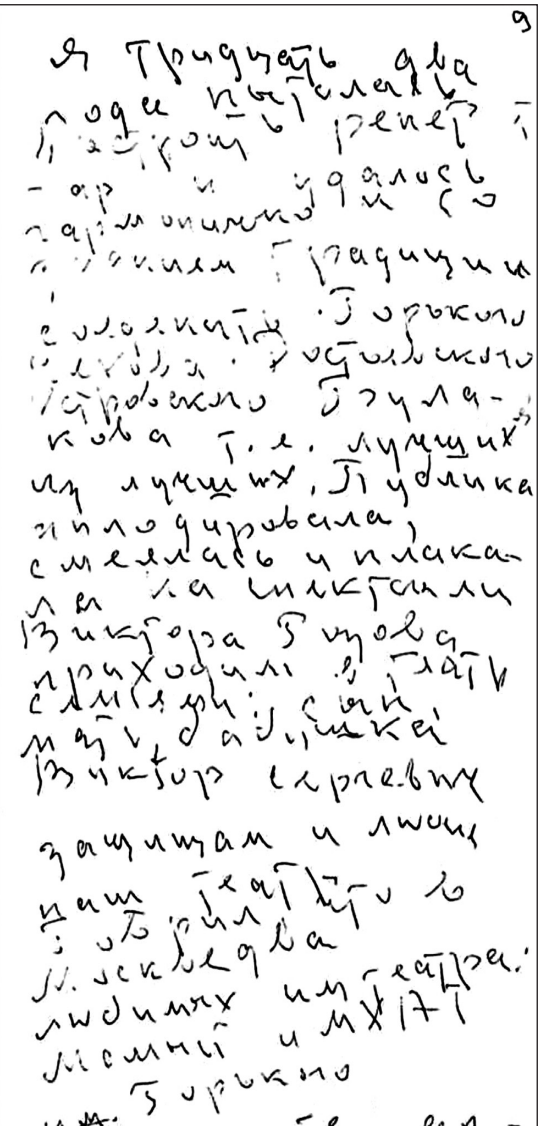 9
Я тридцать два
года пыталась
построить реперт
-ар и удалось
гармонично и со
традиции
Горького
Чехова Достоевского
Островского Булга-
кова т.е. лучших
из лучших. Публика
аплодировала,
смеялась и плака-
ла на спектакли
Виктора Розова
приходили в театр
семьями: сын
мать, бабушка
Виктор Сергеевич
защищал и любил
наш театр
говорил
Москве два
любимых им театра:
Малый и МХАТ
им. Горького